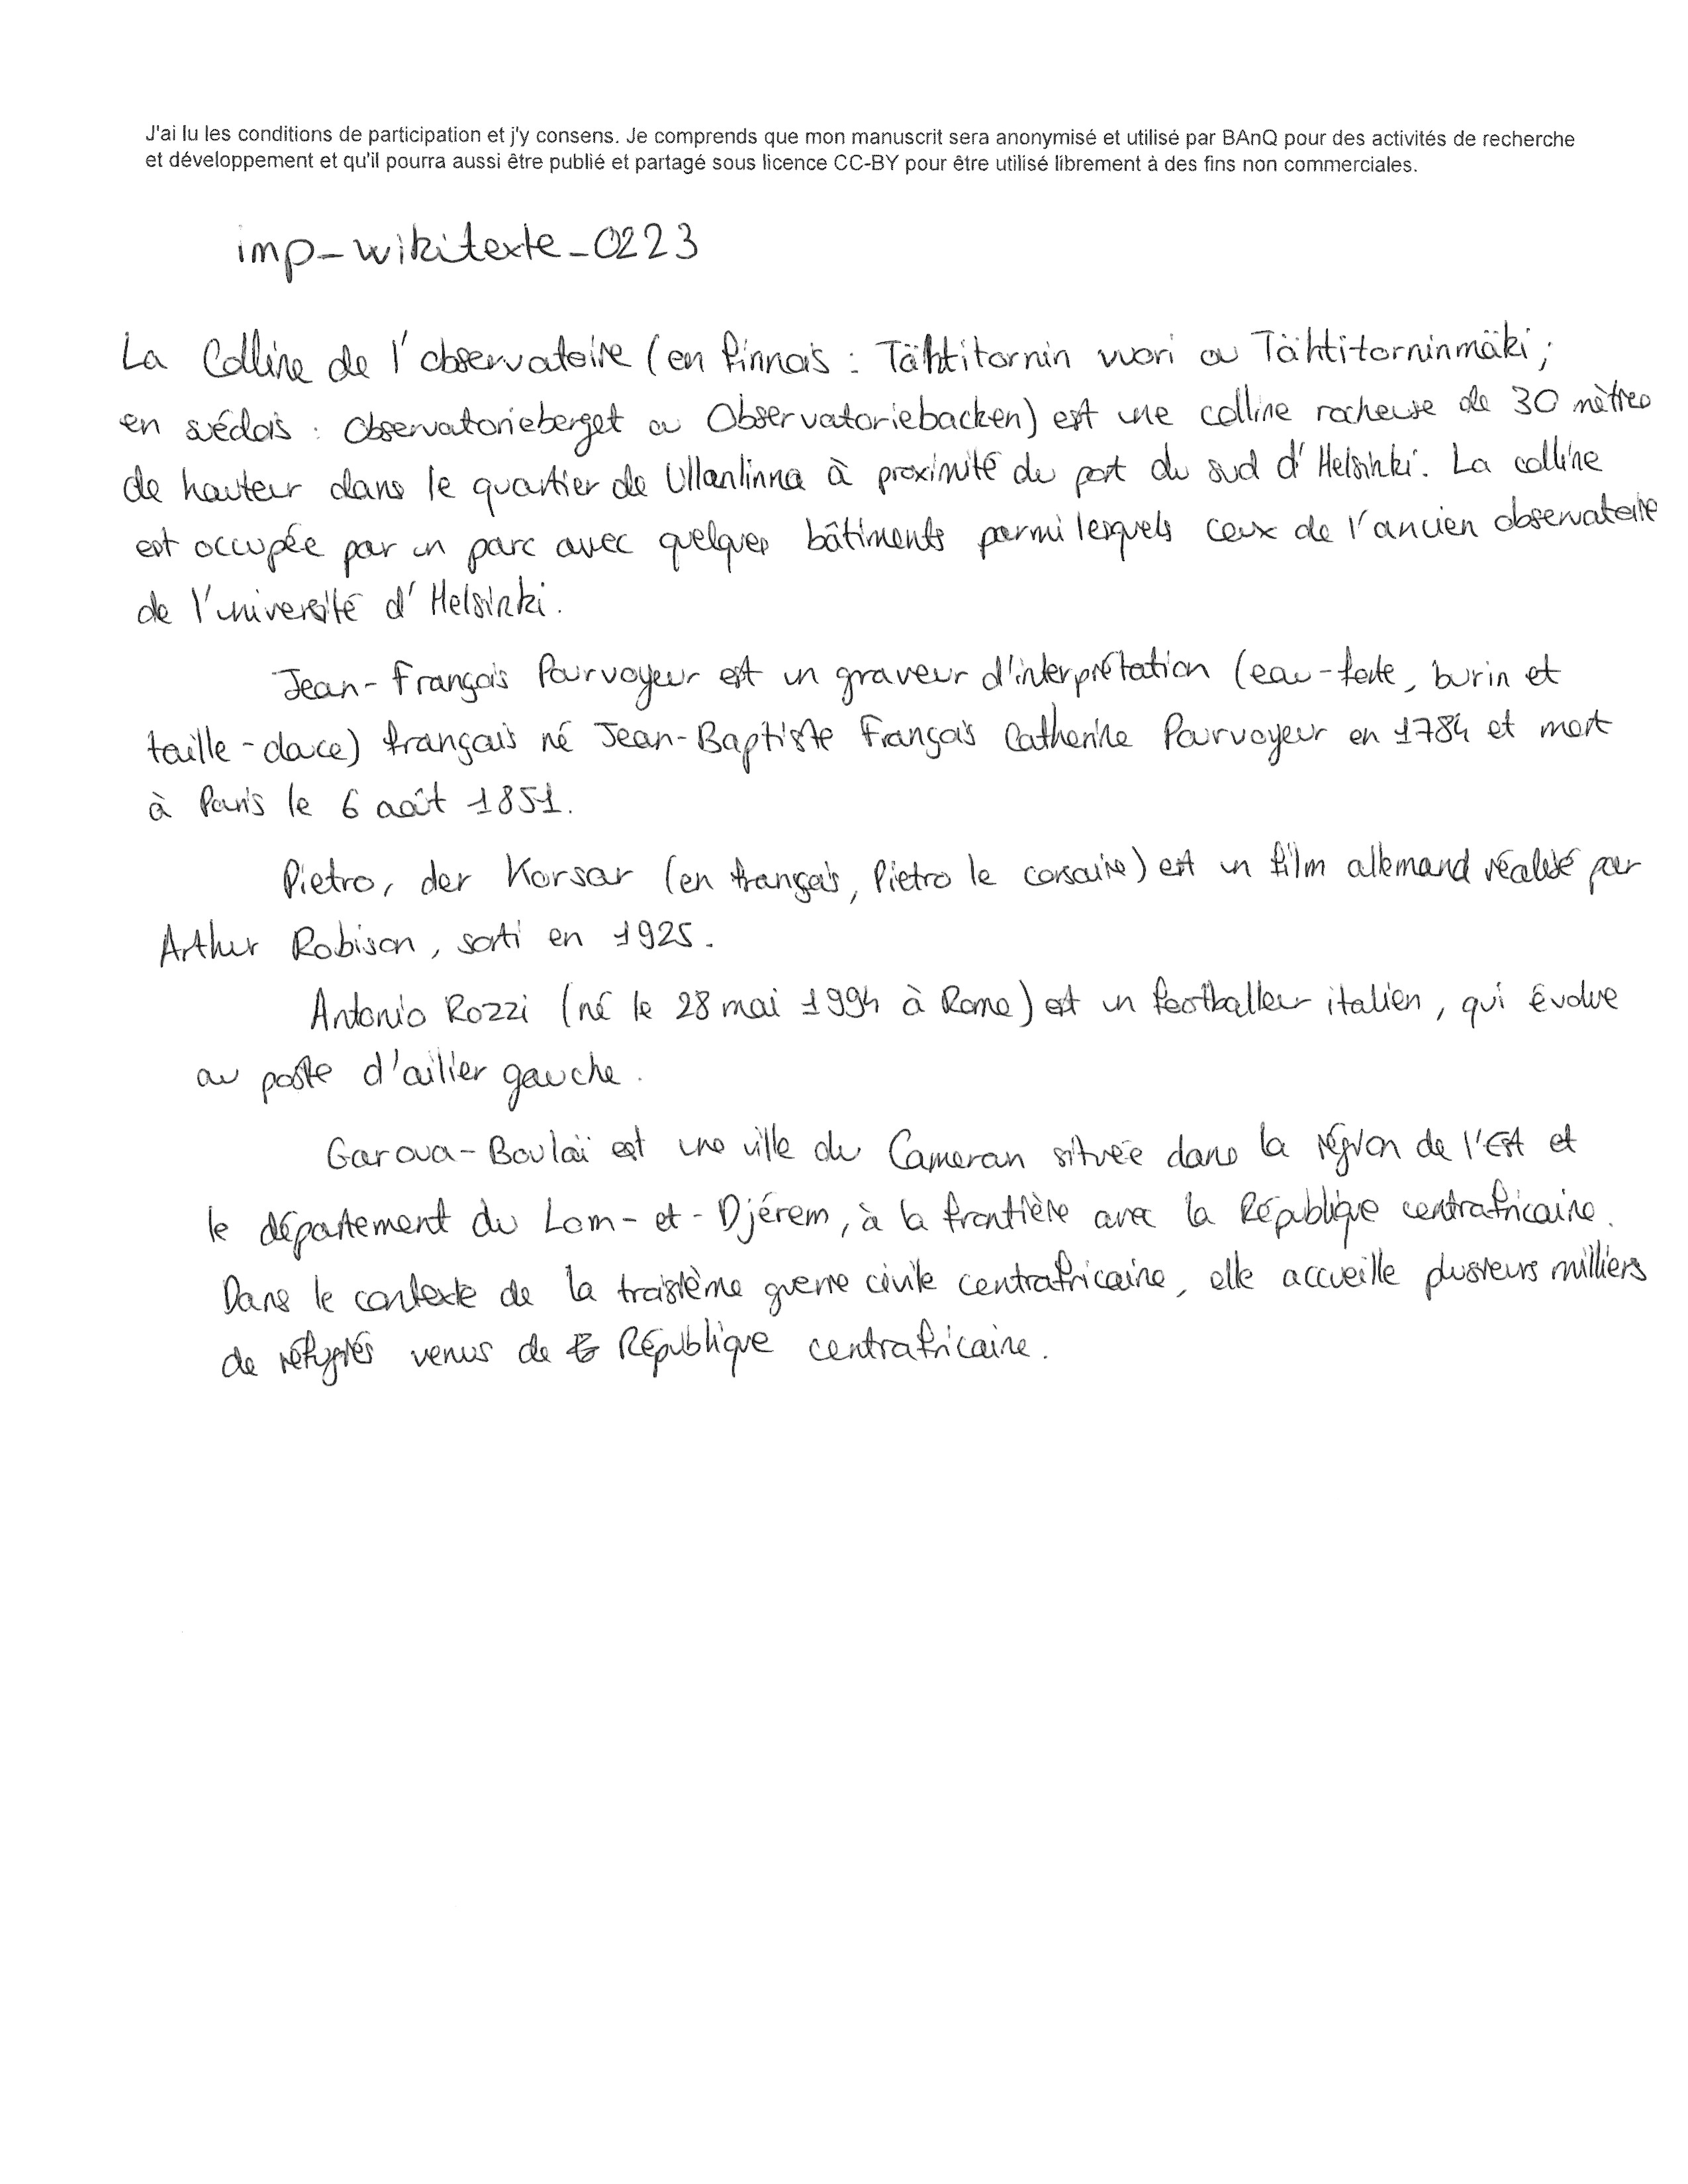 J'ai lu les conditions de participation et j'y consens. Je comprends que mon manuscrit sera anonymisé et utilisé par BAnQ pour des activités de recherche
et développement et qu'il pourra aussi être publié et partagé sous licence CC-BY pour être utilisé librement à des fins non commerciales.
imp-wikitexte-0223
La Colline de l'observatoire (en finnois : Tähtitornin vuori ou Tähtitorninmäki ;
en suédois : Observatorieberget ou Observatoriebacken) est une colline rocheuse de 30 mètres
de hauteur dans le quartier de Ullanlinna à proximité du port du sud d'Helsinki. La colline
est occupée par un parc avec quelques bâtiments parmi lesquels ceux de l'ancien observatoire
de l'université d'Helsinki.
Jean-François Pourvoyeur est un graveur d'interprétation (eau-forte, burin et
taille-douce) français né Jean-Baptiste François Catherine Pourvoyeur en 1784 et mort
à Paris le 6 août 1851.
Pietro, der Korsar (en français, Pietro le corsaire) est un film allemand réalisé par
Arthur Robison, sorti en 1925.
Antonio Rozzi (né le 28 mai 1994 à Rome) est un footballeur italien, qui évolue
au poste d'ailier gauche.
Garoua-Boulaï est une ville du Cameroun située dans la région de l'Est et
le département du Lom-et-Djérem, à la frontière avec la République centrafricaine.
Dans le contexte de la troisième guerre civile centrafricaine, elle accueille plusieurs milliers
de réfugiés venus de République centrafricaine.